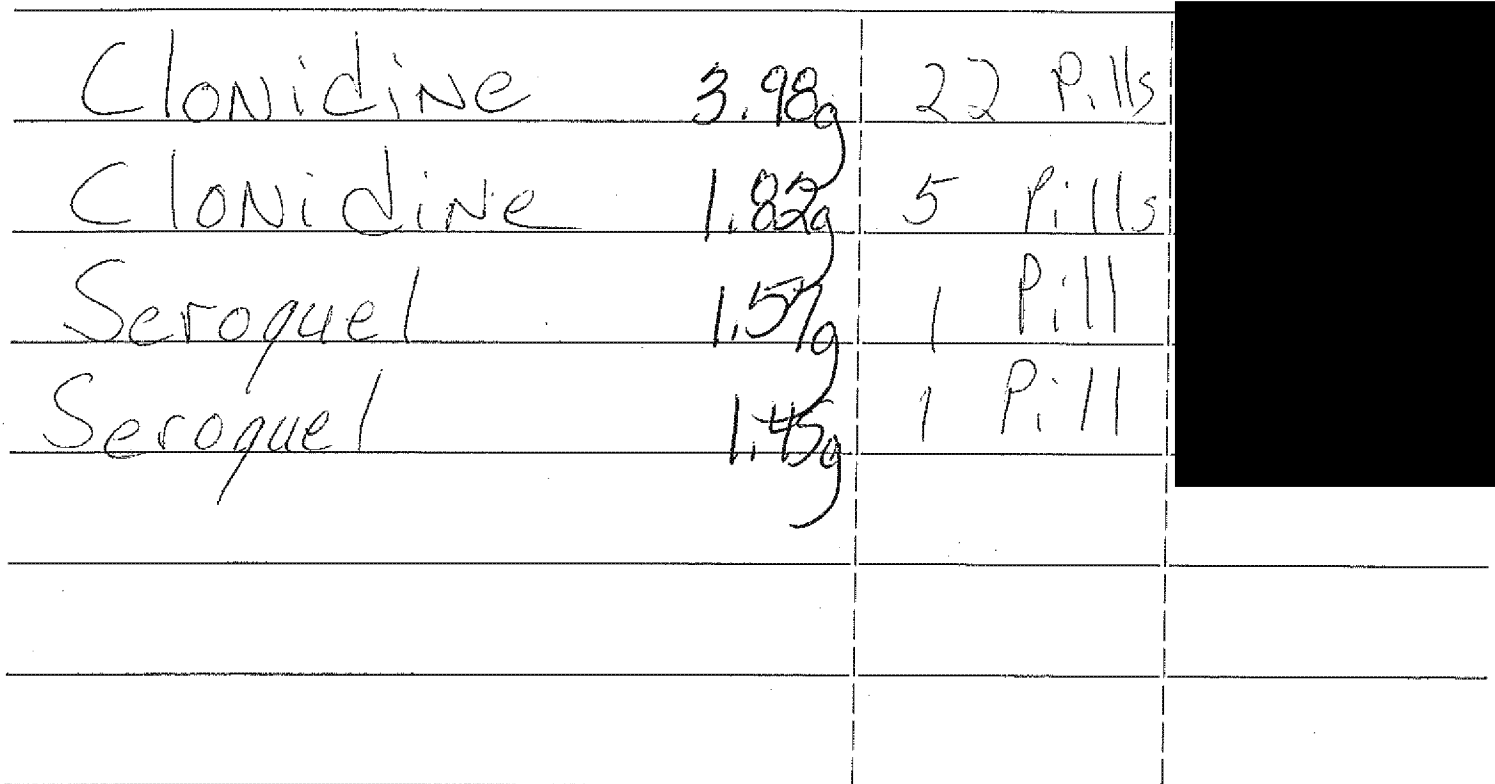 Clonidine 3.98g 22 Pills
Clonidine 1.82g 5 Pills
Seroquel 1.57g 1 Pill
Seroquel 1.45g 1 Pill